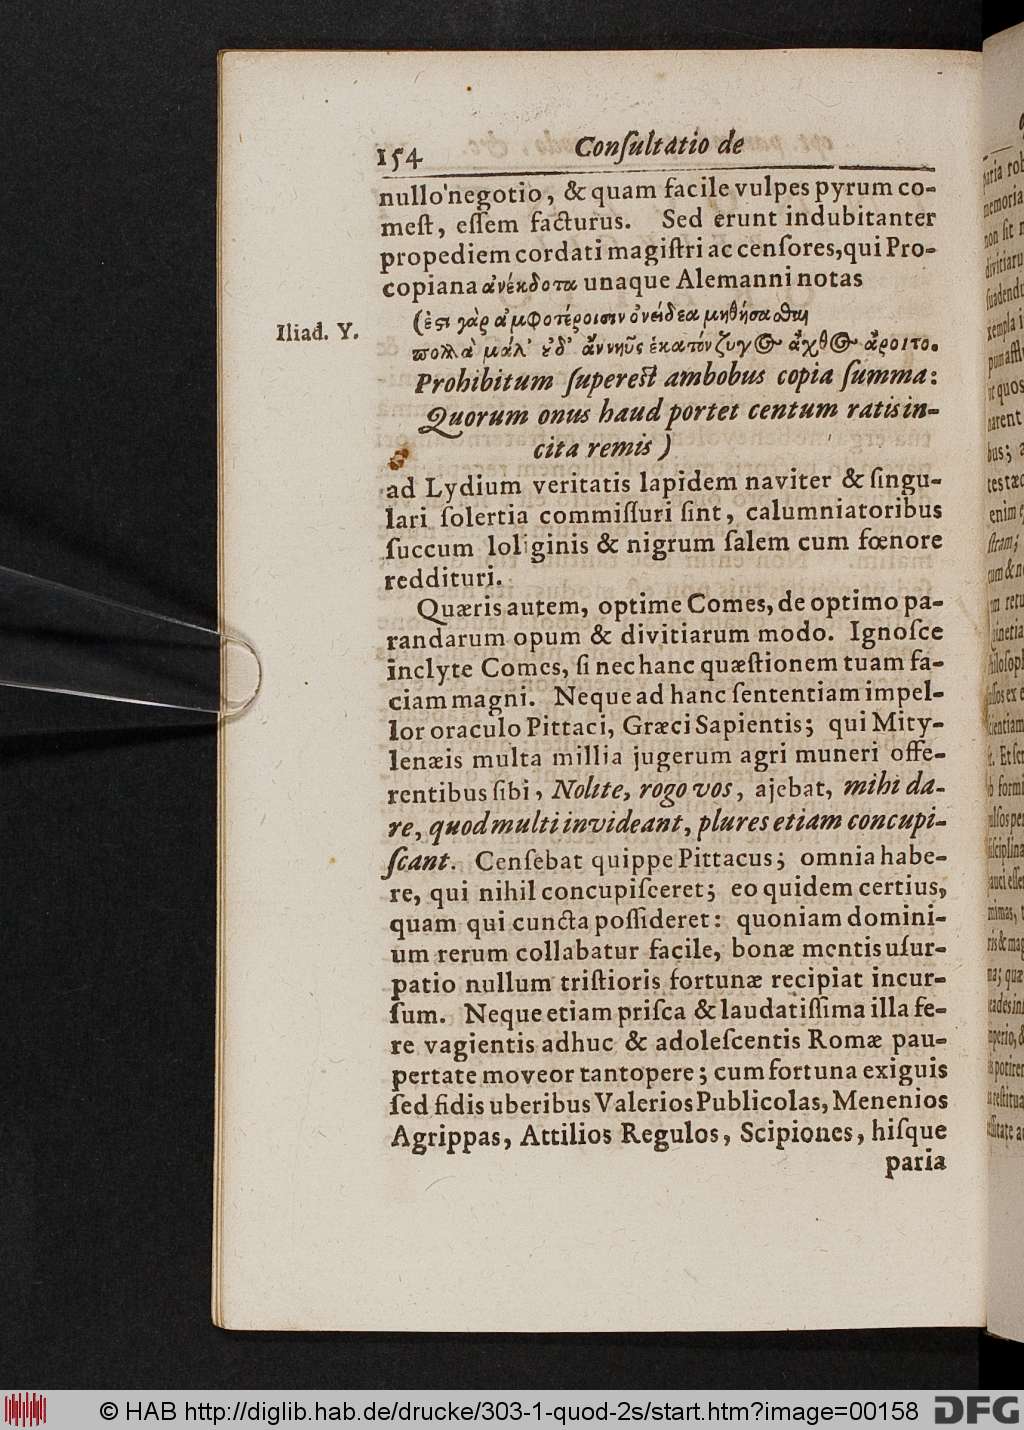 154 Conſultatio de
nullo negotio, & quam facile vulpes pyrum co-
meſt, eſſem facturus. Sed erunt indubitanter
propediem cordati magiſtri ac cenſores, qui Pro-
copiana ἀνέκδοτα unaque Alemanni notas
Iliad. Y.
(ἐςι γὰρ ἀμφοτέροισιν ὀνείδεα μηθήσαοθαι
πολλὰ μάλ' ȣδ' ἂν νηῦς ἑκατόνζυγ@ ἄχθ@ ἄροιτο.
Prohibitum ſupereſt ambobus copia ſumma:
Quorum onus haud portet centum ratis in-
cita remis)
ad Lydium veritatis lapidem naviter & ſingu-
lari ſolertia commiſſuri ſint, calumniatoribus
ſuccum loliginis & nigrum ſalem cum fœnore
reddituri.
Quæris autem, optime Comes, de optimo pa-
randarum opum & divitiarum modo. Ignoſce
inclyte Comes, ſi nec hanc quæſtionem tuam fa-
ciam magni. Neque ad hanc ſententiam impel-
lor oraculo Pittaci, Græci Sapientis; qui Mity-
lenæis multa millia jugerum agri muneri offe-
rentibus ſibi, Nolite, rogo vos, ajebat, mihi da-
re, quod multi invideant, plures etiam concupi-
ſcant. Cenſebat quippe Pittacus; omnia habe-
re, qui nihil concupiſceret; eo quidem certius,
quam qui cuncta poſſideret: quoniam domini-
um rerum collabatur facile, bonæ mentis uſur-
patio nullum triſtioris fortunæ recipiat incur-
ſum. Neque etiam priſca & laudatiſſima illa fe-
re vagientis adhuc & adoleſcentis Romæ pau-
pertate moveor tantopere; cum fortuna exiguis
ſed fidis uberibus Valerios Publicolas, Menenios
Agrippas, Attilios Regulos, Scipiones, hiſque
paria
© HAB http://diglib.hab.de/drucke/303-1-quod-2s/start.htm?image=00158 DFG